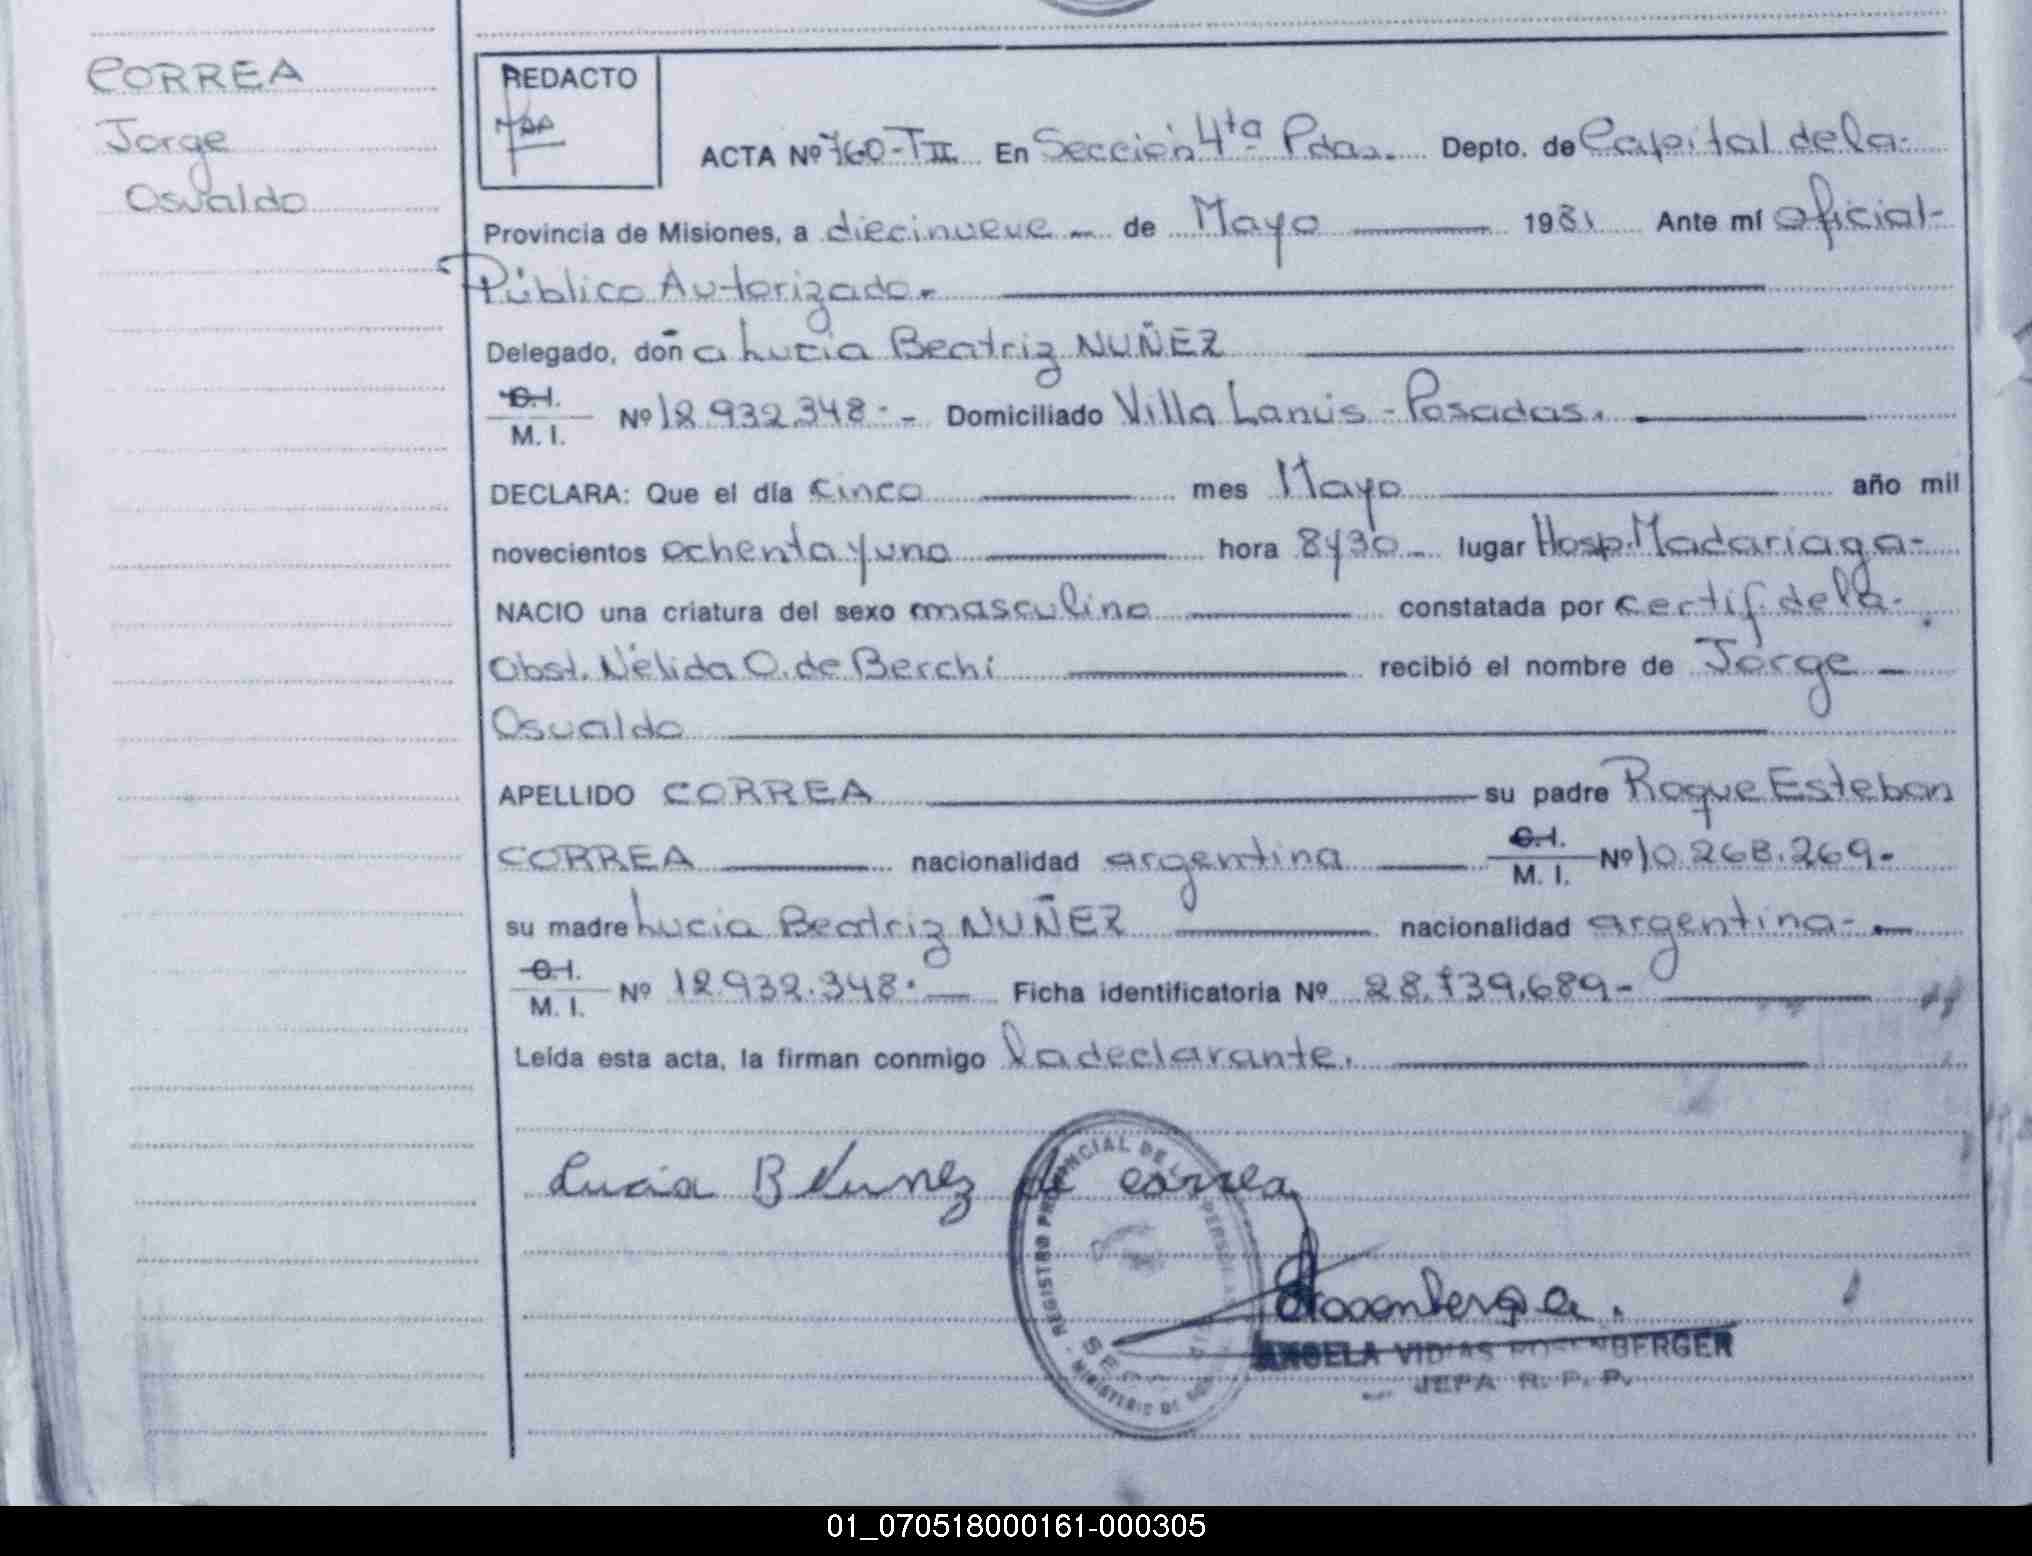 CORREA
Jorge
Osvaldo
REDACTO
ACTA Nº 760-TII En Sección 4ta Pdas. Depto. de Capital de la-
Provincia de Misiones, a diecinueve - de Mayo 1981 Ante mí Oficial-
Público Autorizado.-
Delegado, doña Lucia Beatriz NUÑEZ
C.I.
M. I. Nº 12.932.348.- Domiciliado Villa Lanús - Posadas.
DECLARA: Que el día cinco mes Mayo año mil
novecientos ochenta y uno hora 8y30 - lugar Hosp. Madariaga-
NACIO una criatura del sexo masculino constatada por certif. de la-
Obst. Nélida O. de Berchi recibió el nombre de Jorge -
Osvaldo
APELLIDO CORREA su padre Roque Esteban
CORREA nacionalidad argentina C.I.
M. I. Nº 10.268.269.-
su madre Lucia Beatriz NUÑEZ nacionalidad argentina-.-
C.I.
M. I. Nº 12.932.348.- Ficha identificatoria Nº 28.739.689-
Leída esta acta, la firman conmigo la declarante.
Lucia B Nunez de correa
REGISTRO PROVINCIAL DE
MINISTERIO DE
ANGELA VIDIAS ROSENBERGER
JEFA R. P. P.
01_070518000161-000305